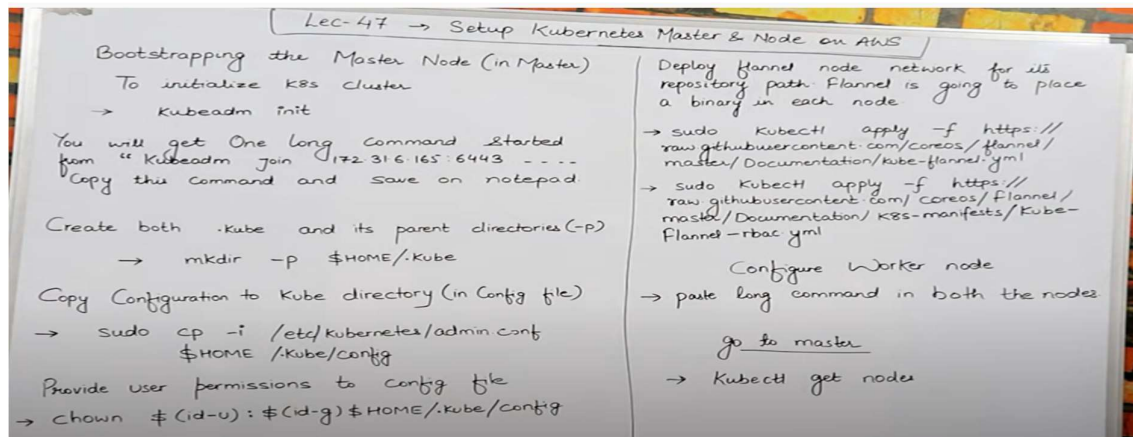 Lec-47 → Setup Kubernetes Master & Node on AWS
Bootstrapping the Master Node (in Master)
To initialize K8s Cluster
→ Kubeadm init
You will get One long Command started
from "Kubeadm Join 172.31.6.165:6443 ----
Copy this command and save on notepad.
Create both .kube and its parent directories (-p)
→ mkdir -p $HOME/.kube
Copy Configuration to Kube directory (in Config file)
→ sudo cp -i /etc/kubernetes/admin.conf
$HOME /.kube/config
Provide user permissions to config file
→ chown $(id-u):$(id-g) $HOME/.kube/config
Deploy flannel node network for its
repository path. Flannel is going to place
a binary in each node.
→ sudo Kubectl apply -f https://
raw.githubusercontent.com/coreos/flannel/
master/Documentation/kube-flannel.yml
→ sudo Kubectl apply -f https://
raw.githubusercontent.com/coreos/flannel/
master/Documentation/K8s-manifests/Kube-
Flannel-rbac.yml
Configure Worker node
→ paste long command in both the nodes.
go to master
→ Kubectl get nodes